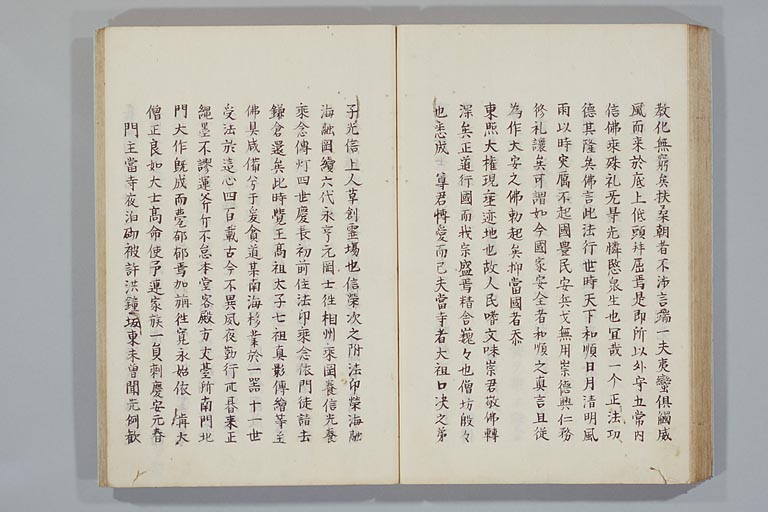 教化無窮矣扶桑朝者不沛言端一夫夷蠻俱觸威
風而來於底上低頭拜屈焉是即所以外守五常内
信佛乘殊礼旡量光憐愍衆生也宜哉一个正法功
德其隆矣佛言此法行世時天下和順日月清明風
雨以時灾厲不起國豊民安兵戈無用崇德興仁務
修礼讓矣可謂如今國家安全者和順之真言且從
為作大安之佛勅起矣抑當國者忝
東照大權現垂迹地也故人民嗜文味崇君敬佛轉
深矣正道行國而我宗盛焉精舎巍々也僧坊殷々
也悉成 尊君愽愛而已夫當寺者大祖口决之弟
子光信上人草創靈場也信榮次之附法印榮海融
海融岡續六代永亨元岡士徃相州乘岡養信光養
乘念傳灯四世慶長初前住法印乘念依門徒詰去
鎌倉還矣此時覽王高祖太子七祖真影傳繪等至
佛具咸備兮于爰貪道某南海杉葉於一器十一世
受法於遠心四百載古今不異夙夜勤行亦暮乘正
繩墨不謬運斧斤不怠本堂客殿方丈臺所南門北
門大作既成而甍郁郁焉加旃徃寛永始依 講大
僧正良如大士髙命使予連家族一員剩慶安元春
門主當寺夜泊砌被許洪鐘坂東未曽聞先例歓